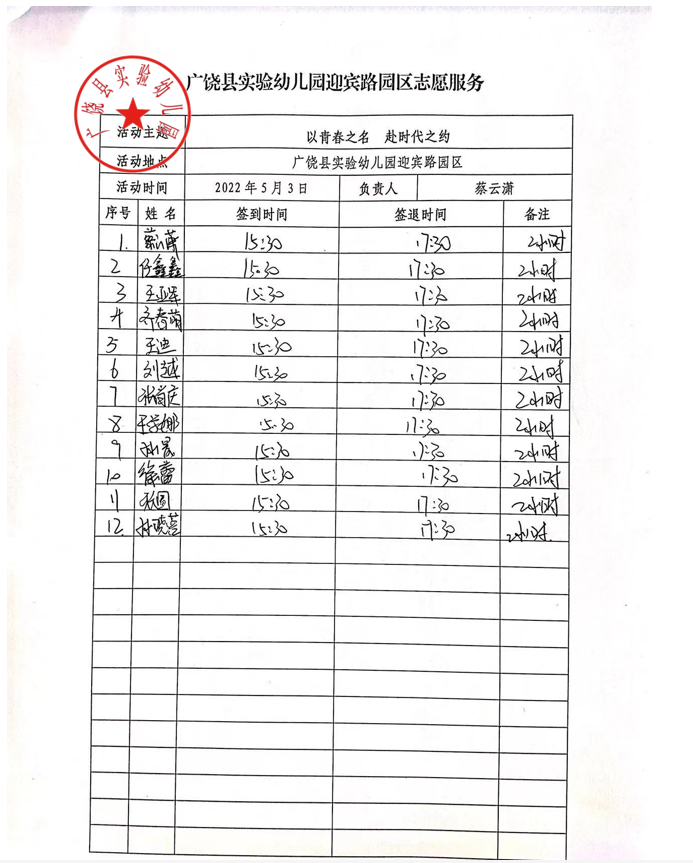 广饶县实验幼儿园迎宾路园区志愿服务
广饶县实验幼儿园
活动主题 以青春之名 赴时代之约
活动地点 广饶县实验幼儿园迎宾路园区
活动时间 2022年5月3日 负责人 蔡云潇
序号 姓名 签到时间 签退时间 备注
1. 15:30 17:30 2小时
2 任鑫鑫 15:30 17:30 2小时
3 王亚军 15:30 17:30 2小时
4 齐春萌 15:30 17:30 2小时
5 王迪 15:30 17:30 2小时
6 刘越 15:30 17:30 2小时
7 15:30 17:30 2小时
8 15:30 17:30 2小时
9 15:30 17:30 2小时
10 徐蕾 15:30 17:30 2小时
11 15:30 17:30 2小时
12. 15:30 17:30 2小时